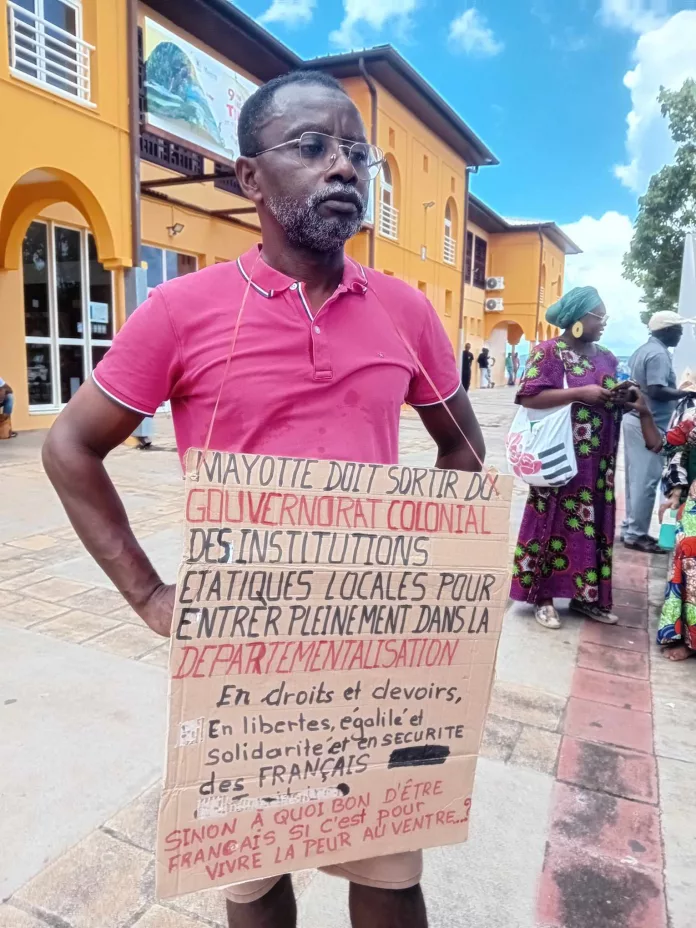 MAYOTTE DOIT SORTIR DU
GOUVERNORAT COLONIAL
DES INSTITUTIONS
ETATIQUES LOCALES POUR
ENTRER PLEINEMENT DANS LA
DEPARTEMENTALISATION
En droits et devoirs,
En libertes, égalité et
solidarité et en SECURITE
des FRANÇAIS
SINON À QUOI BON D'ÊTRE
FRANÇAIS SI C'est pour
VIVRE LA PEUR AU VENTRE...?